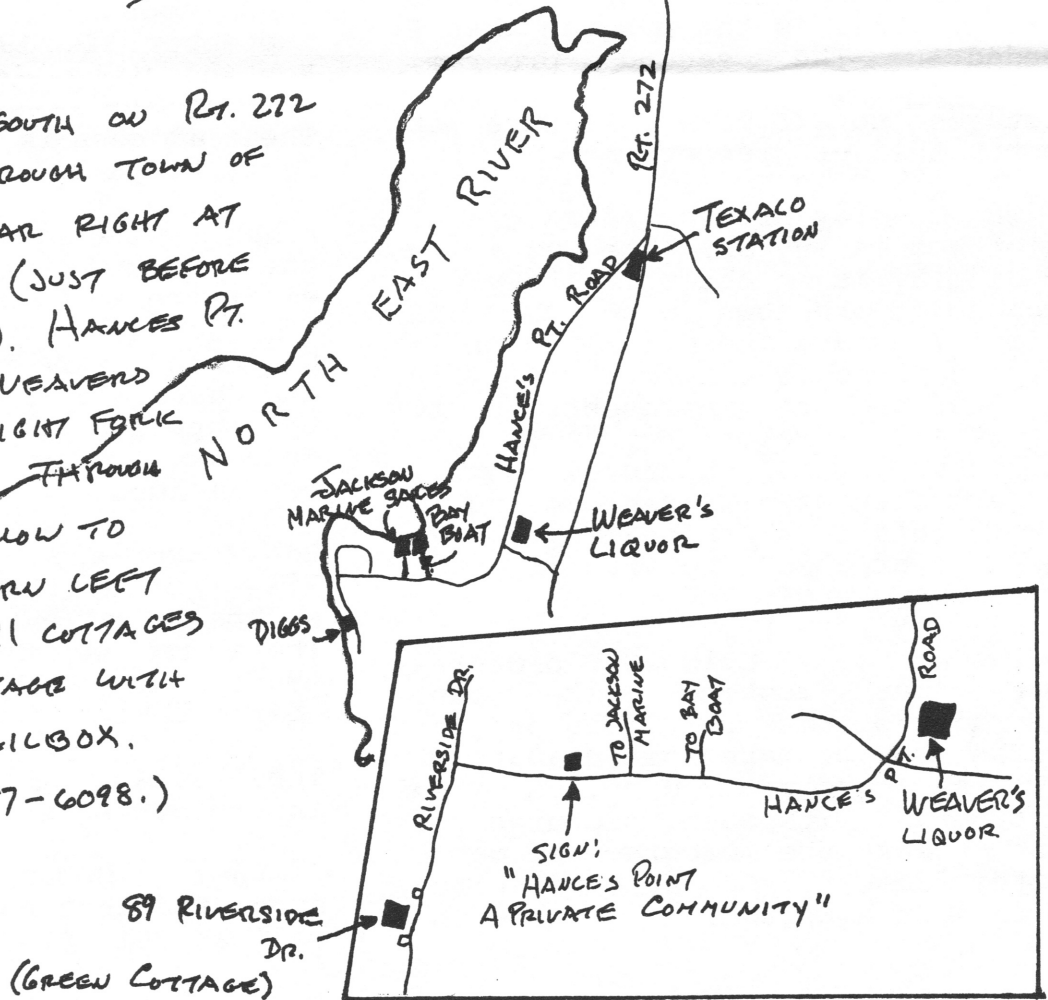 SOUTH ON RT. 272
ROUGH TOWN OF
AR RIGHT AT
(JUST BEFORE
). HANCES PT.
WEAVERS
IGHT FORK
THROUGH
LOW TO
RN LEFT
COTTAGES
TAGE WITH
ILBOX.
7-6098.)
NORTH EAST RIVER
RT. 272
TEXACO
STATION
HANCE'S PT. ROAD
JACKSON
MARINE SALES
BAY
BOAT
WEAVER'S
LIQUOR
DIGGS
RIVERSIDE DR.
TO JACKSON
MARINE
TO BAY
BOAT
HANCE'S PT. ROAD
WEAVER'S
LIQUOR
SIGN:
"HANCE'S POINT
A PRIVATE COMMUNITY"
89 RIVERSIDE
DR.
(GREEN COTTAGE)